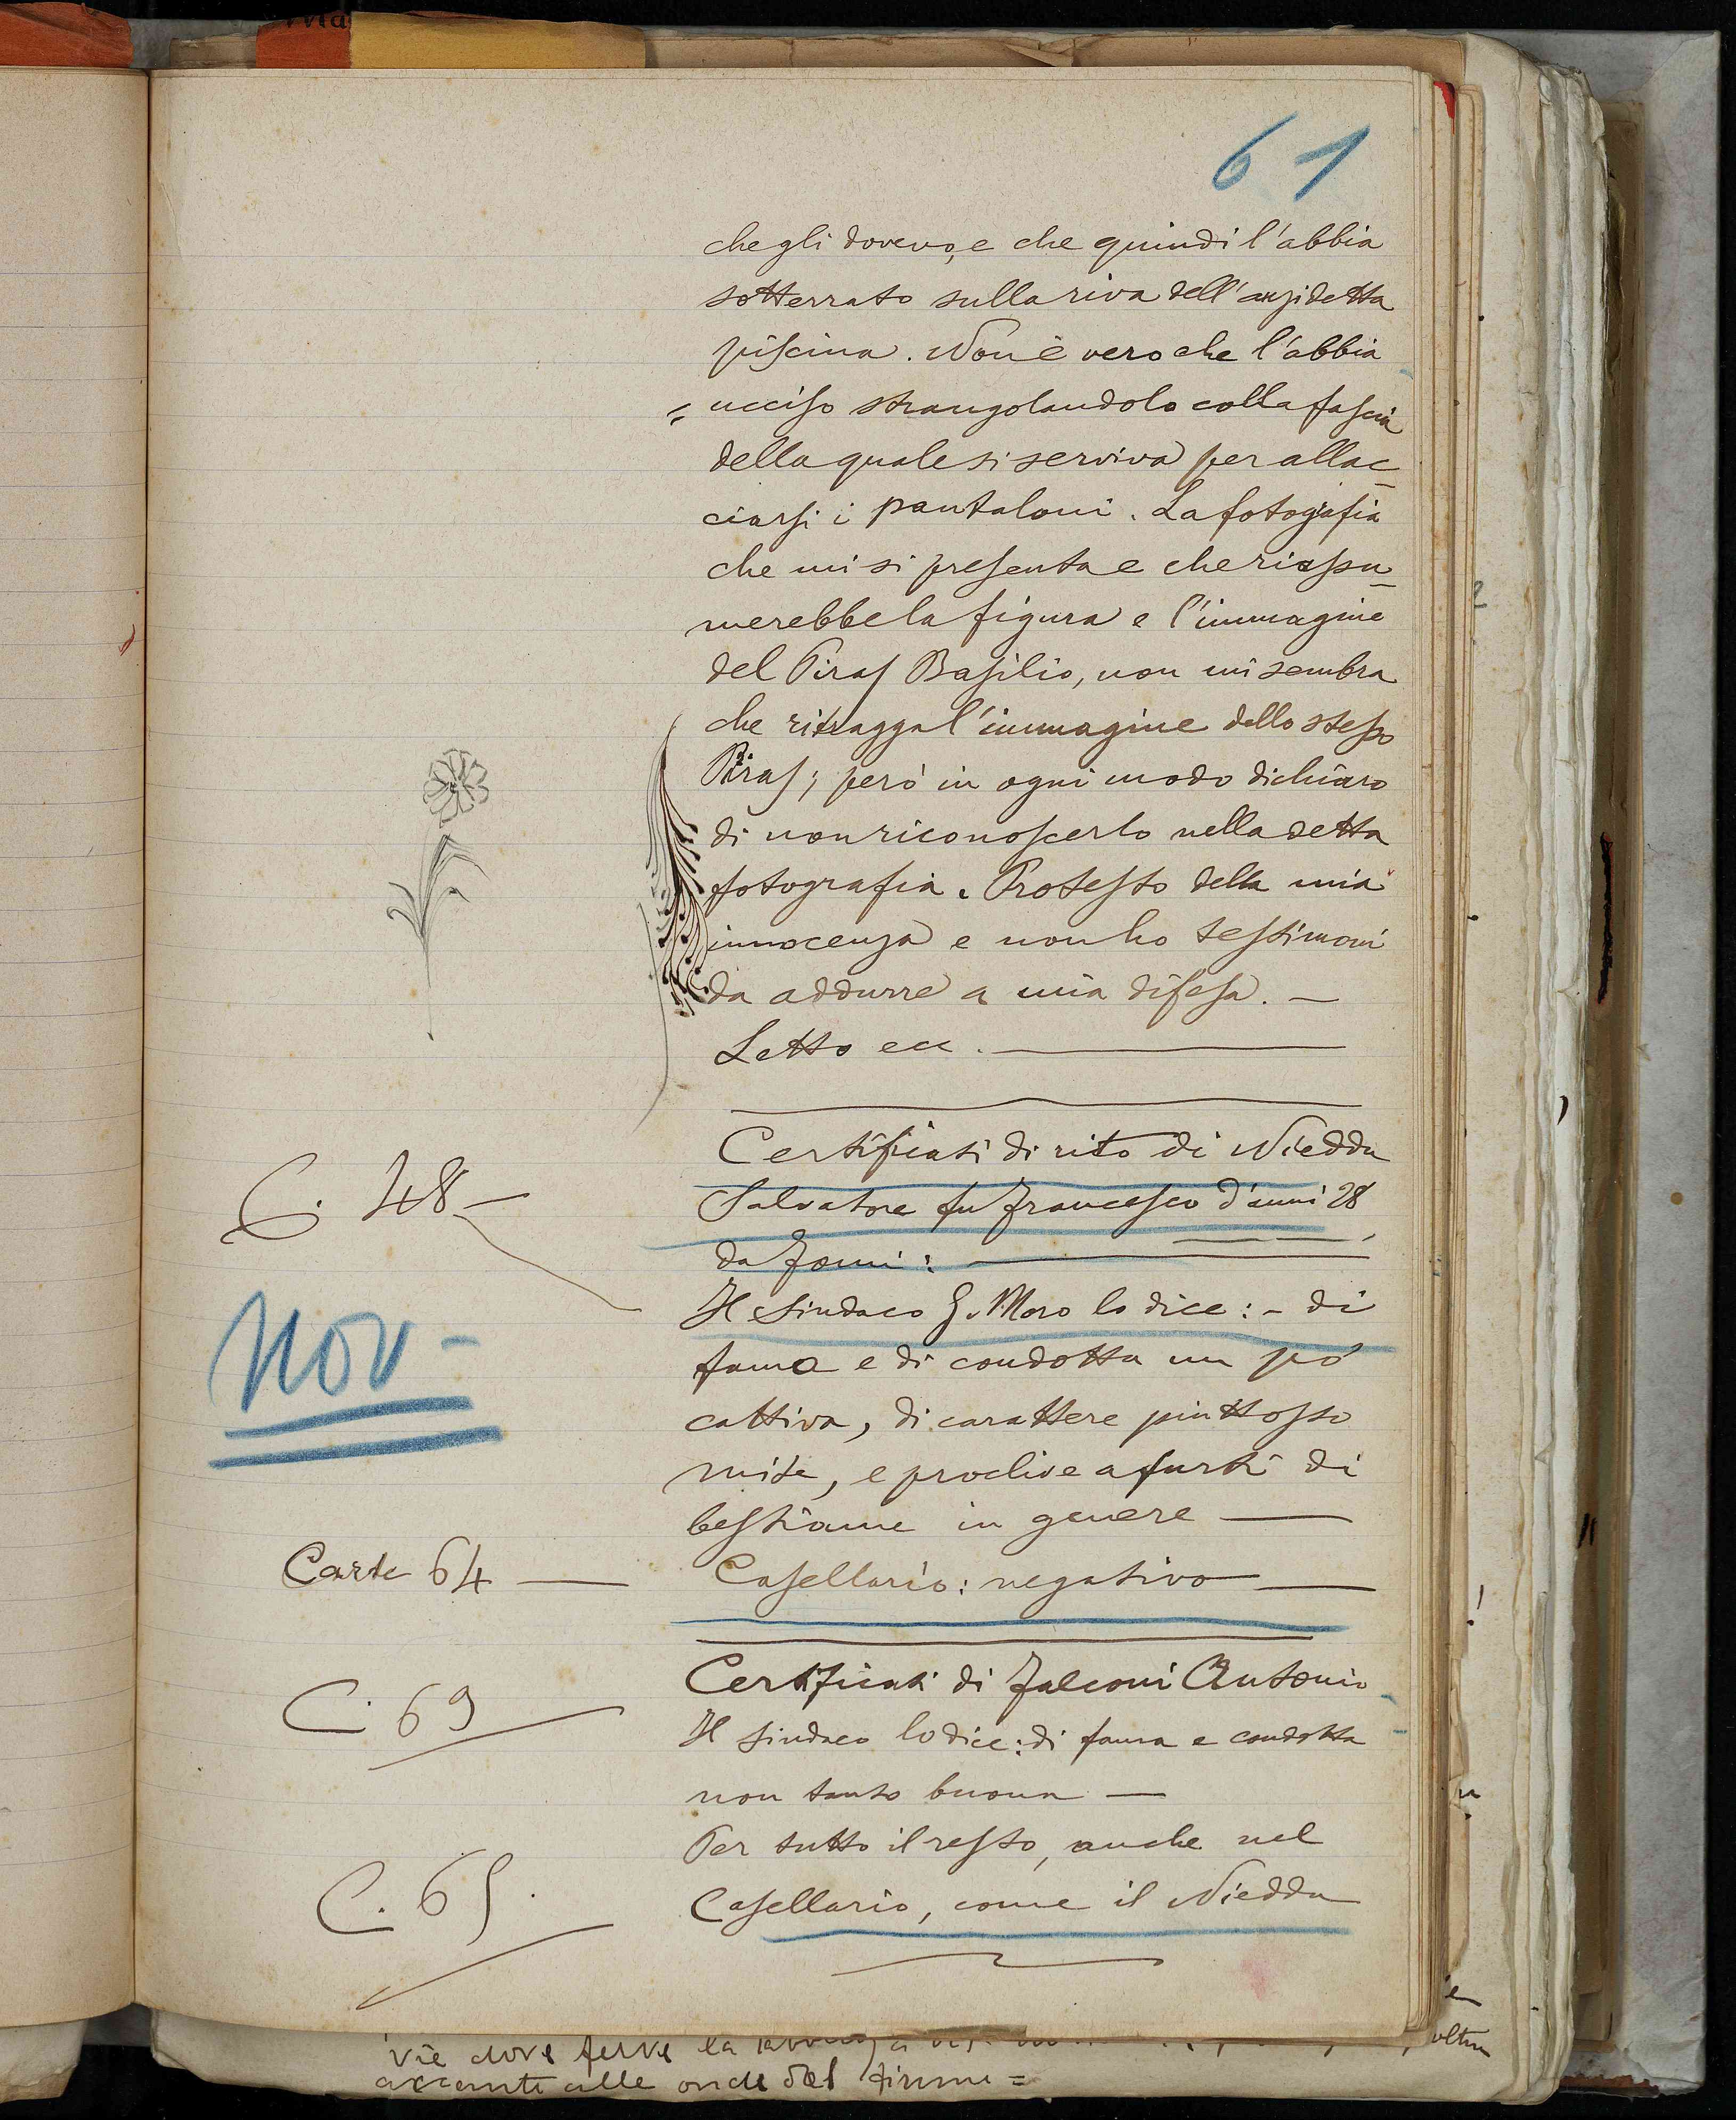 61
che gli dovevo, e che quindi l'abbia
sotterrato sulla riva dell'anzidetta
piscina. Non è vero che l'abbia
= ucciso strangolandolo colla fascia
della quale si serviva per allac
ciarsi i pantaloni. La fotografia
che mi si presenta e che riassu
merebbe la figura e l'immagine
del Piras Basilio, non mi sembra
che ritragga l'immagine dello stesso
Piras; però in ogni modo dichiaro
di non riconoscerlo nella detta
fotografia. Protesto della mia
innocenza e non ho testimoni
da addurre a mia difesa. —
Letto ecc. —
Certificati di rito di Nieddu
C. 48 —
Salvatore fu Francesco d'anni 28
da Fonni: —
Il Sindaco G. Moro lo dice: - di
Nov —
fama e di condotta un pò
cattiva, di carattere piuttosto
mite, e proclive a furti di
bestiame in genere —
Carte 64 — Casellario: negativo —
Certificati di Falconi Antonio
C. 69
Il Sindaco lo dice: di fama e condotta
non tanto buona —
Per tutto il resto, anche nel
C. 65.
Casellario, come il Nieddu
vie dove ferve la
oltre
alle onde del fiume =